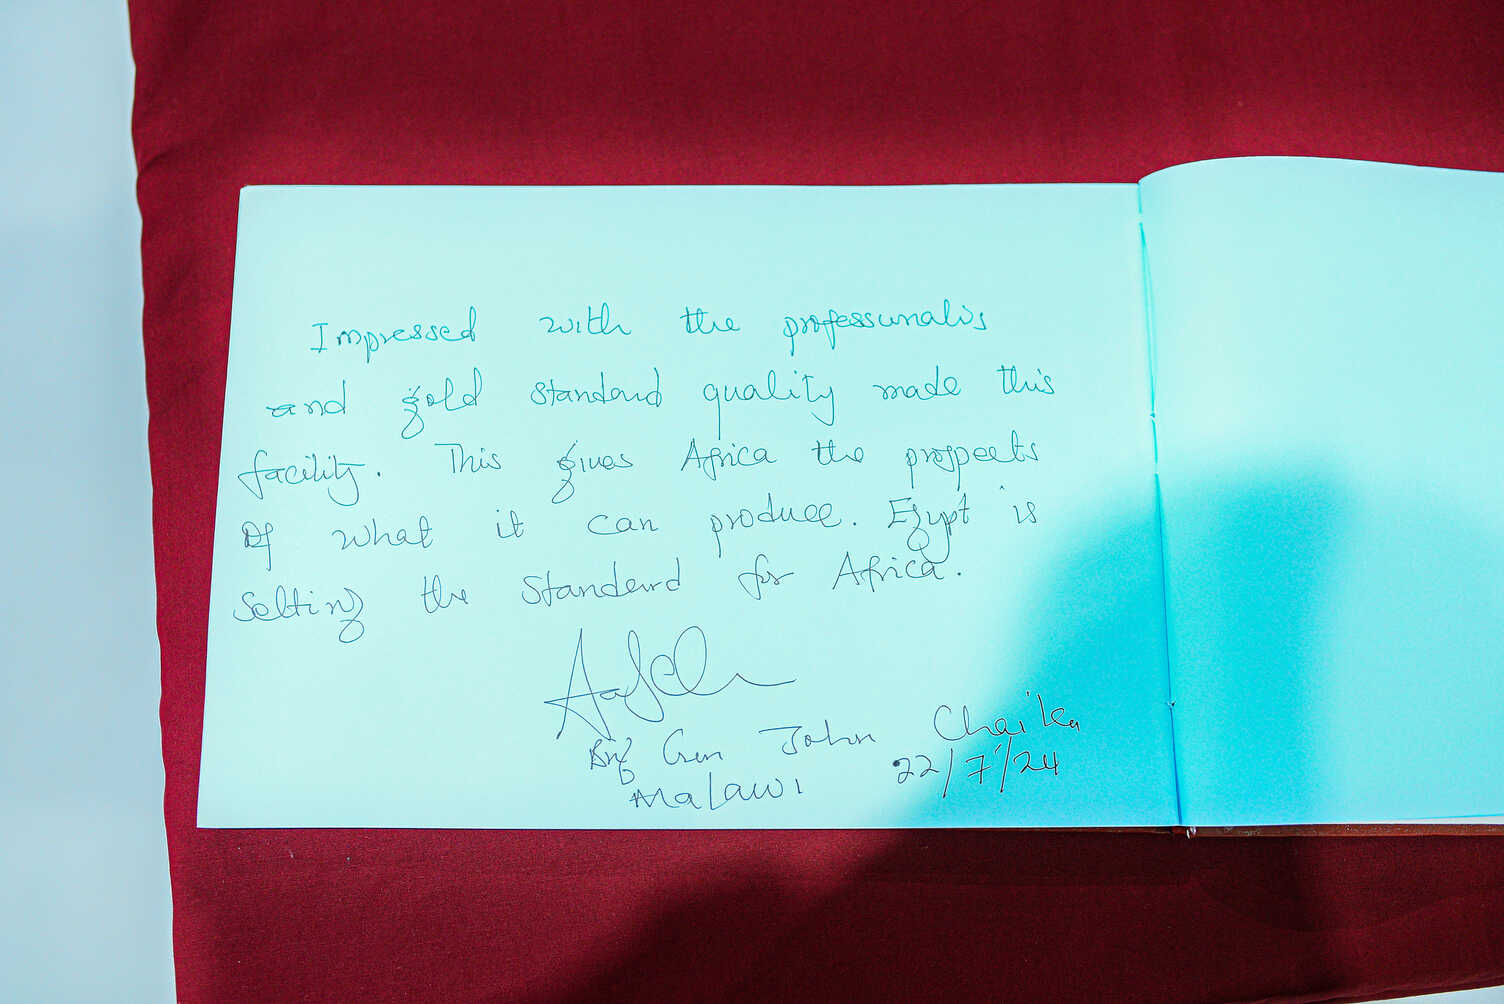 Impressed with the professunalis
and gold standard quality made this
facility. This gives Africa the prospects
Of what it can produce. Egypt is
Setting the Standard for Africa.
Brig Gen John Chaika
Malawi 22/7/24